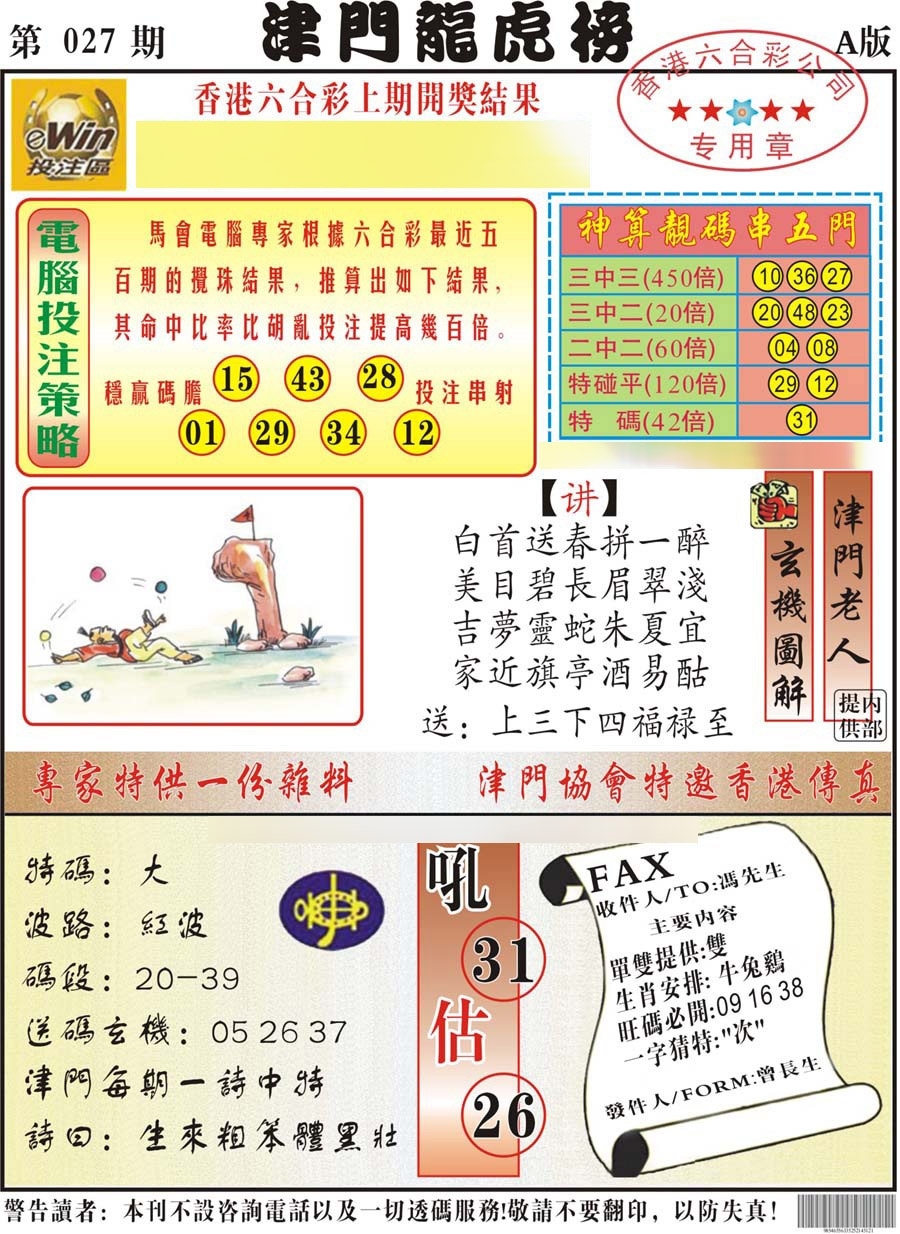 第 027 期
津門龍虎榜
A版
香港六合彩公司
专用章
eWin
投注區
香港六合彩上期開獎結果
電腦投注策略
馬會電腦專家根據六合彩最近五
百期的攪珠結果，推算出如下結果，
其命中比率比胡亂投注提高幾百倍。
穩贏碼膽 15 43 28 投注串射
01 29 34 12
神算靚碼串五門
三中三(450倍) 10 36 27
三中二(20倍) 20 48 23
二中二(60倍) 04 08
特碰平(120倍) 29 12
特 碼(42倍) 31
【讲】
白首送春拼一醉
美目碧長眉翠淺
吉夢靈蛇朱夏宜
家近旗亭酒易酤
送：上三下四福禄至
玄機圖解
津門老人
内部提供
專家特供一份雜料
津門協會特邀香港傳真
特碼：大
波路：紅波
碼段：20-39
送碼玄機：05 26 37
津門每期一詩中特
詩曰：生來粗笨體黑壯
吼
31
估
26
FAX
收件人/TO:馮先生
主要内容
單雙提供:雙
生肖安排: 牛兔鷄
旺碼必開:09 16 38
一字猜特:"次"
發件人/FORM:曾長生
警告讀者：本刊不設咨詢電話以及一切透碼服務!敬請不要翻印，以防失真!